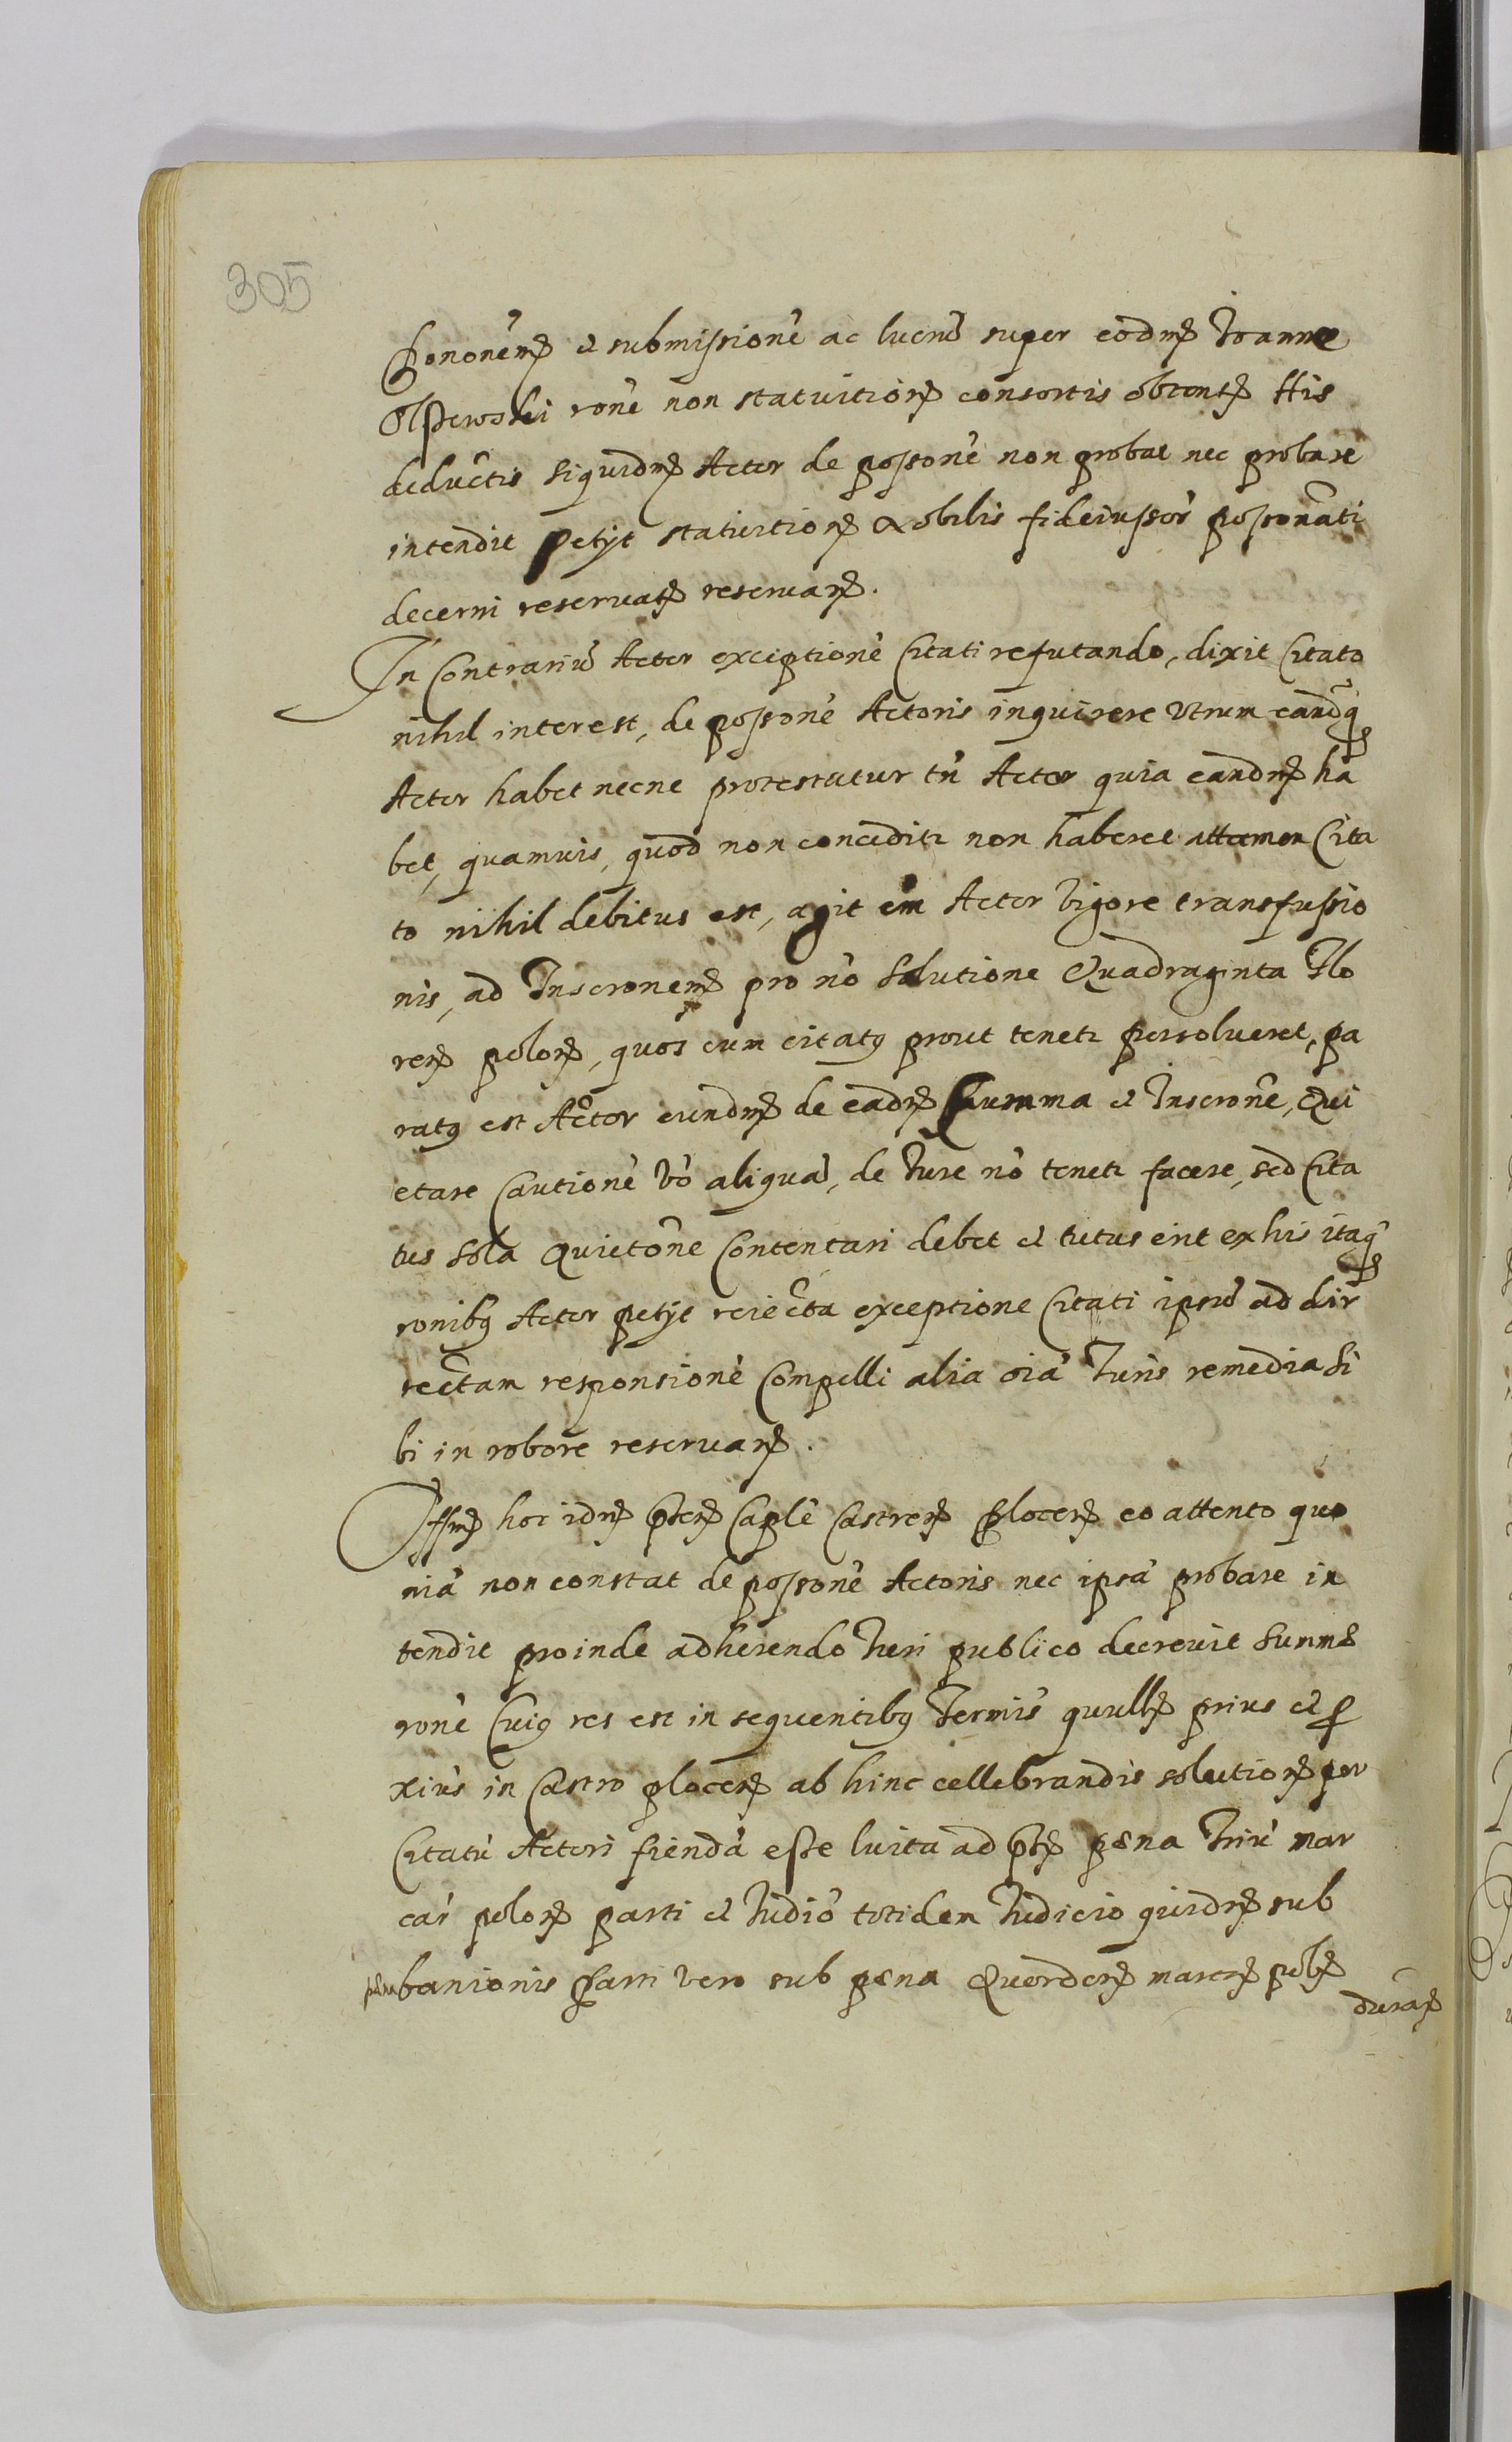 305
Pononem et submissione ac lucru super eodm Ioanne
Olszewski rone non statuition consortis obtent His
deductis siquidm Actor de possone non probat nec probare
intendit petyt statuition Nobilis fideiussor possonati
decerni reservat reservan.
In Contrariu Actor exceptione Citati refutando, dixit Citato
nihil interest, de possone Actoris inquirere utrum eandq
Actor habet necne protestatur tn Actor quia eandm ha
bet, quamvis, quod non conceditr non haberet attamen Cita
to nihil debitus est, agit em Actor Vigore transfussio
nis, ad Inscronem pro no Solutione Quadraginta Flo
ren polon, quos cum citatq prout tenetr persolveret, pa
ratq est Actor eundm de eadm Summa et Inscrone, Qui
etare Cautione vo aliqua, de Iure no tenetr facere, sed Cita
tus sola Quietone Contentari debet et tutus erit ex his itaq
ronibq Actor petyt reiecta exceptione Citati ipsu ad dir
rectam responsione Compelli alia oia Iuris remedia si
bi in robore reservan.
Offm hoc idm Caple Castren plocen eo attento quo
nia non constat de possone Actoris nec ipsa probare in
tendit proinde adherendo Iuri publico decrevit Summe
rone Cuiq res est in sequentibq Termis quullz prius et p
xius in Castro plocen ab hinc cellebrandis solution per
Citatu Actori fienda esse luita ad pena Triu mar
car polon parti et Iudio totidem Iudicio quidm sub
pena banionis Parti vero sub pena Quordecem marcar pol
duran